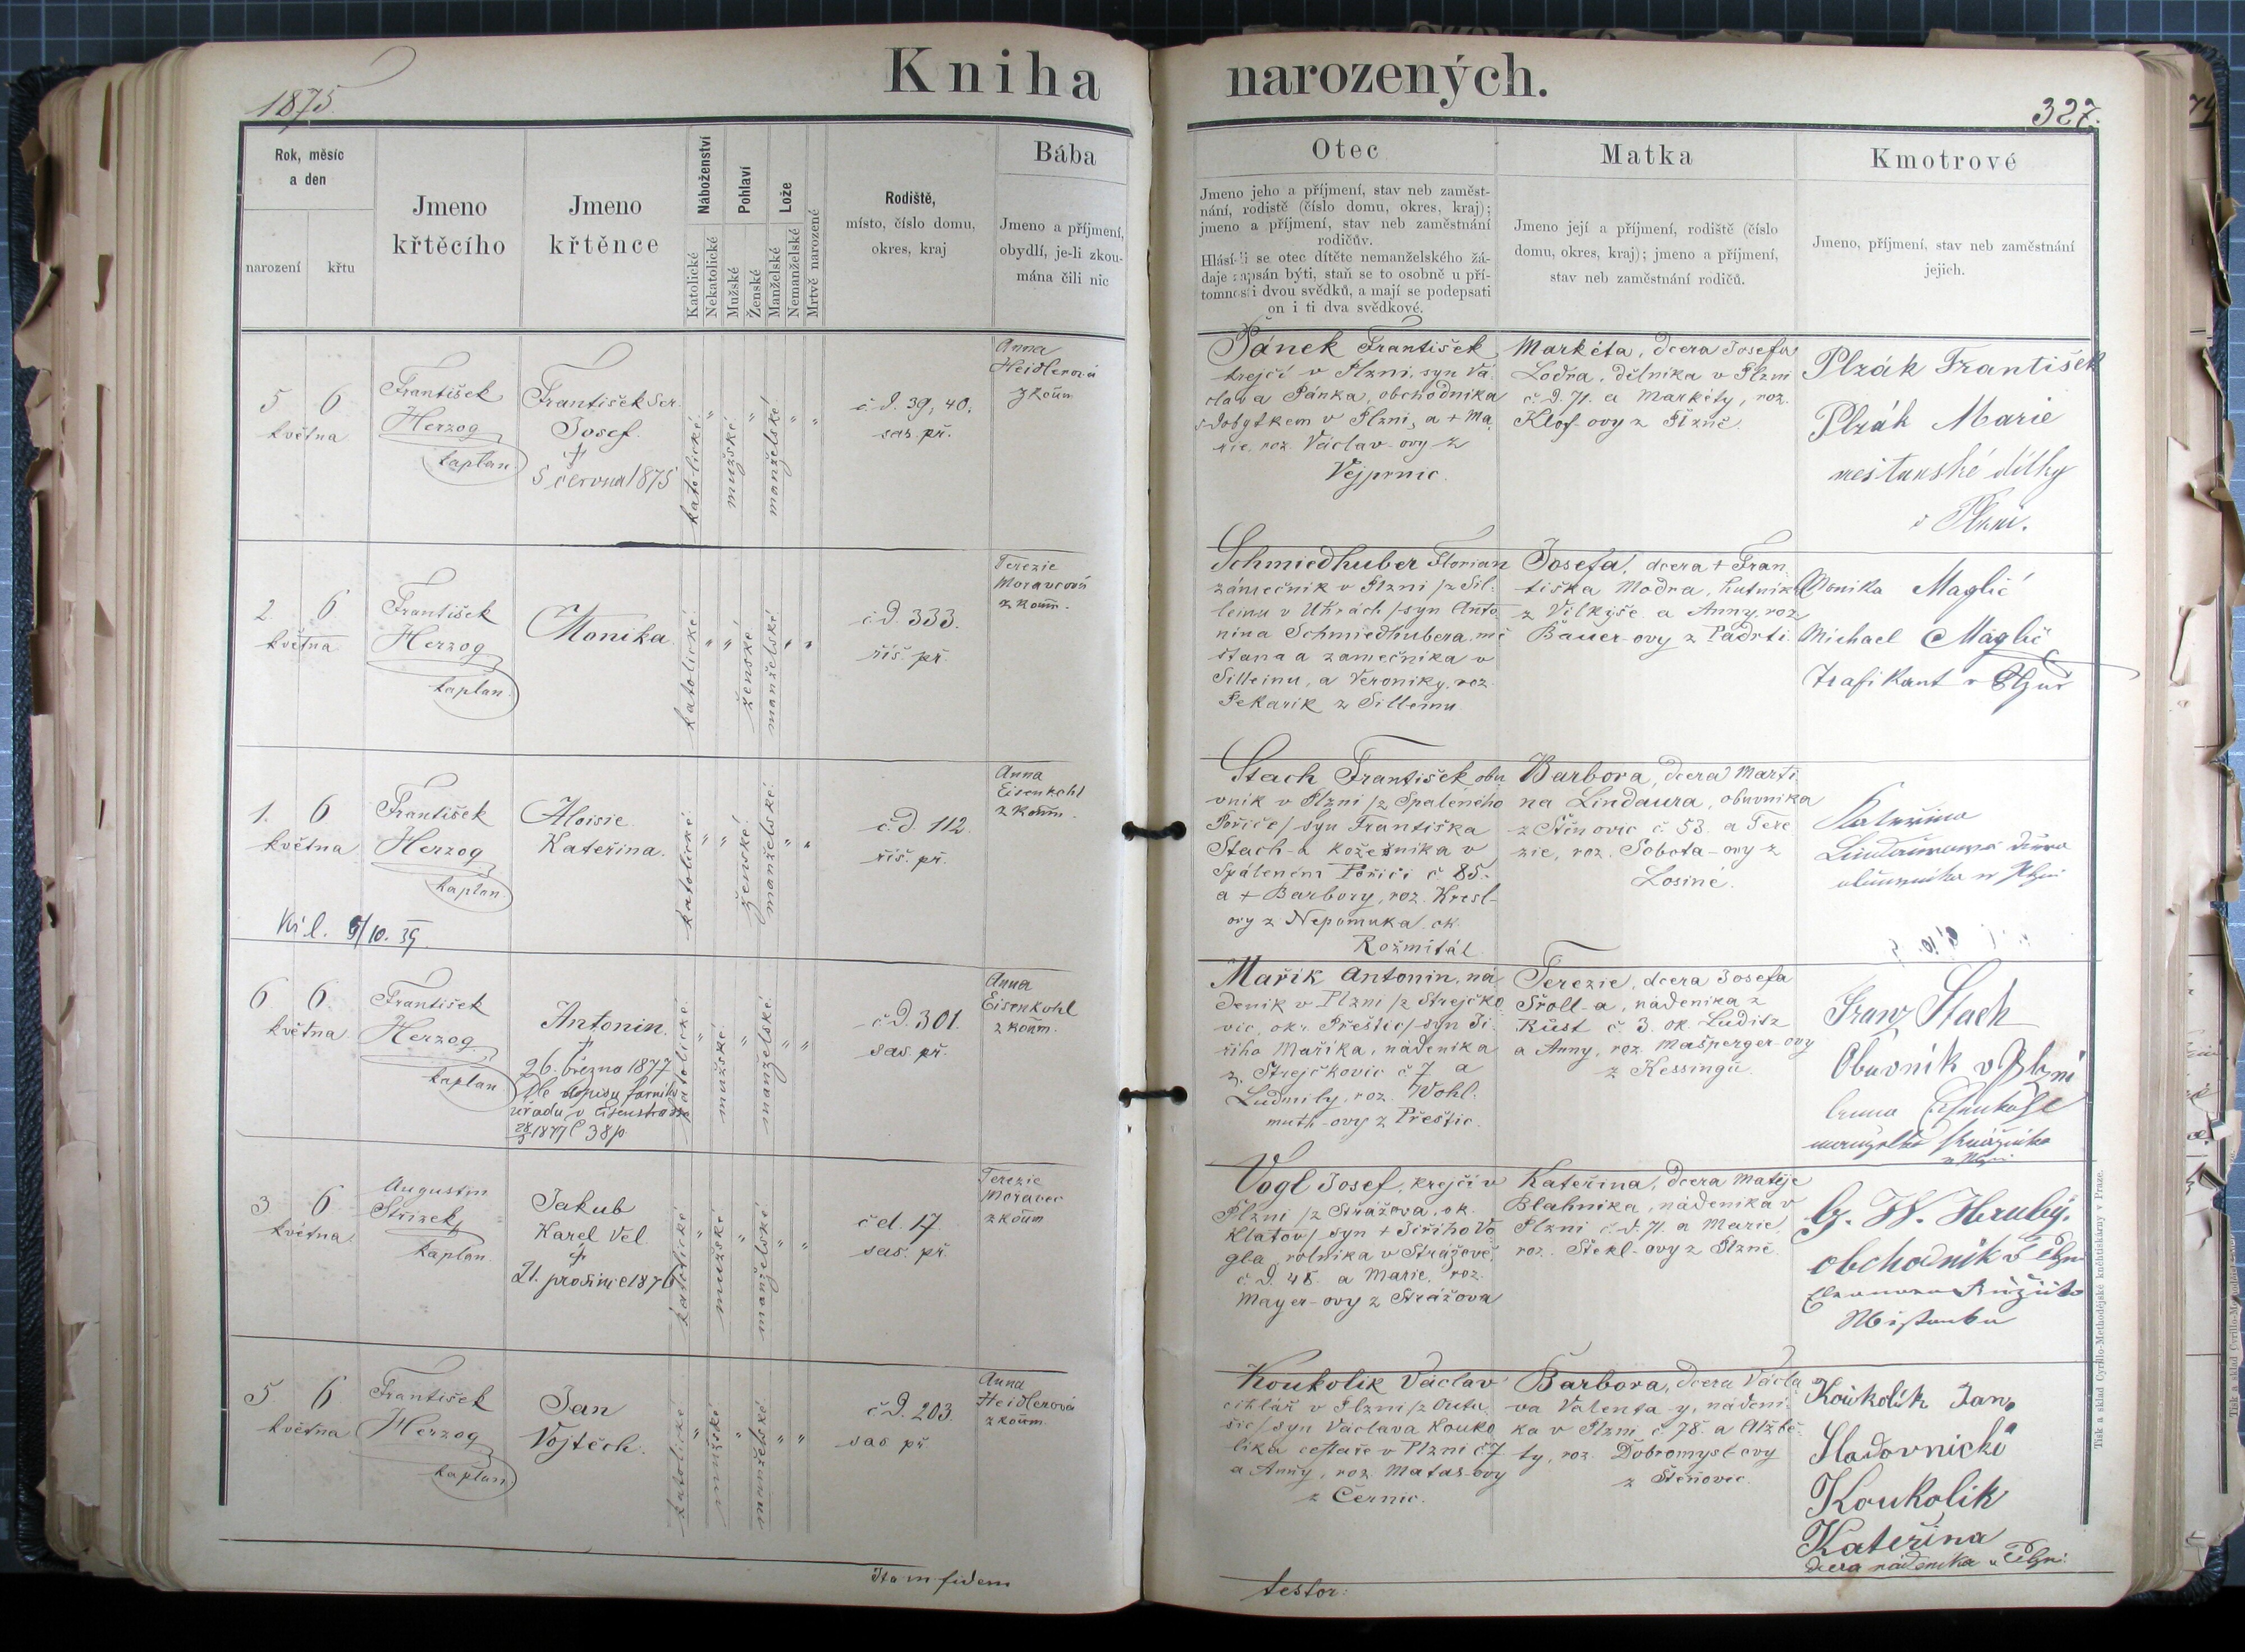 Kniha narozených.
1875.
327.
Rok, měsíc
a den
narození
křtu
Jmeno
křtěcího
Jmeno
křtěnce
Náboženství
Katolické
Nekatolické
Pohlaví
Mužské
Ženské
Lože
Manželské
Nemanželské
Mrtvě narozené
Rodiště,
místo, číslo domu,
okres, kraj
Bába
Jmeno a příjmení,
obydlí, je-li zkou-
mána čili nic
Otec
Jmeno jeho a příjmení, stav neb zaměst-
nání, rodiště (číslo domu, okres, kraj);
jmeno a příjmení, stav neb zaměstnání
rodičův.
Hlásí-li se otec dítěte nemanželského žá-
daje zapsán býti, staň se to osobně u pří-
tomnosti dvou svědků, a mají se podepsati
on i ti dva svědkové.
Matka
Jmeno její a příjmení, rodiště (číslo
domu, okres, kraj); jmeno a příjmení,
stav neb zaměstnání rodičů.
Kmotrové
Jmeno, příjmení, stav neb zaměstnání
jejich.
5 6
května
František
Herzog
kaplan
František Ser.
Josef.
†
5 června 1875
katolické
mužské
manželské
č. d. 39, 40,
sas. př.
Anna
Heidlerová
zkoum
Pánek František
krejčí v Plzni, syn Vá-
clava Pánka, obchodníka
s dobytkem v Plzni, a + Ma
rie, roz. Václav-ovy z
Vejprnic.
Markéta, dcera Josefa
Lodra, dělníka v Plzni
č. d. 71. a Markéty, roz.
Klof-ovy z Plzně.
Plzák František
Plzák Marie
měštanské dítky
v Plzni.
2. 6
května
František
Herzog
kaplan
Monika
katolické
ženské
manželské
č. d. 333.
říš. př.
Terezie
Moravcová
zkoum.
Schmiedhuber Florian
zámečník v Plzni /z Sil-
leinu v Uhrách/ syn Anto-
nína Schmiedhubera, mě
šťana a zámečníka v
Silleinu, a Veroniky, roz.
Pekarik z Silleinu
Josefa, dcera + Fran
tiška Modra, hutníka
z Vilkyše a Anny, roz
Bauer-ovy z Padrti.
Monika Maglič
Michael Maglič
Trafikant v Plzni
1. 6
května
František
Herzog
kaplan
Aloisie
Kateřina.
katolické
ženské
manželské
č. d. 112.
říš. př.
Anna
Eisenkohl
zkoum.
Kř. l. 9/10. 39.
Stach František obu
vník v Plzni /z Spáleného
Poříče/ syn Františka
Stach-a kožešníka v
Spáleném Poříčí č 85.
a + Barbory, roz. Kresl-
ovy z Nepomuka, ok.
Rožmitál.
Barbora, dcera Marti
na Lindaura, obuvníka
z Štěnovic č. 53. a Tere
zie, roz. Sobota-ovy z
Losiné.
Kateřina
Lindaurova dcera
obuvníka v Plzni
6 6
května
František
Herzog
kaplan
Antonin.
†
26. března 1877
Dle dopisu farního
úřadu v Eisenstrass
katolické
mužské
manželské
č. d. 301.
sas. př.
Anna
Eisenkohl
zkoum.
Mařík Antonin, ná
deník v Plzni /z Strejčko
vic, okr. Přeštic/ syn Ji-
řího Maříka, nádeníka
z Strejčkovic č 7 a
Ludmily, roz. Wohl-
muth-ovy z Přeštic.
Terezie, dcera Josefa
Šroll-a, nádeníka z
Růst č. 3. ok. Luditz
a Anny, roz. Mašperger-ovy
z Kessingu.
Franz Stach
Obuvník v Plzni
Anna Eisenkohl
manželka
v Plzni
3 6
května
Augustin
Střízek,
kaplan
Jakub
Karel Vel.
†
21. prosince 1876
katolické
mužské
manželské
č d. 17.
sas. př.
Terezie
Moravec
zkoum
Vogl Josef, krejčí v
Plzni /z Strážova, ok.
Klatov/ syn + Jiřího Vo
gla, rolníka v Strážově
č. d. 48. a Marie, roz.
Mayer-ovy z Strážova
Kateřina, dcera Matěje
Blahníka, nádeníka v
Plzni č. d. 71. a Marie
roz. Stekl-ovy z Plzně.
W. Hrubý.
obchodník v Plzni
5. 6
května
František
Herzog
kaplan
Jan
Vojtěch.
katolické
mužské
manželské
č. d. 203.
sas př.
Anna
Heidlerová
zkoum.
Koukolik Václav
cihlář v Plzni /z Outu-
šic/ syn Václava Kouko
líka cestaře v Plzni č 7
a Anny, roz. Matas-ovy
z Černic.
Barbora, dcera Václa
va Valenta-y, nádení-
ka v Plzni č. 78. a Alžbě-
ty, roz. Dobromysl-ovy
z Štěňovec.
Koukolík Jan,
Sladovnický
Koukolik
Kateřina
dcera nádeníka v Plzni.
Ita in fidem
testor:
Tisk a sklad Cyrillo-Methodějské knihtiskárny v Praze.